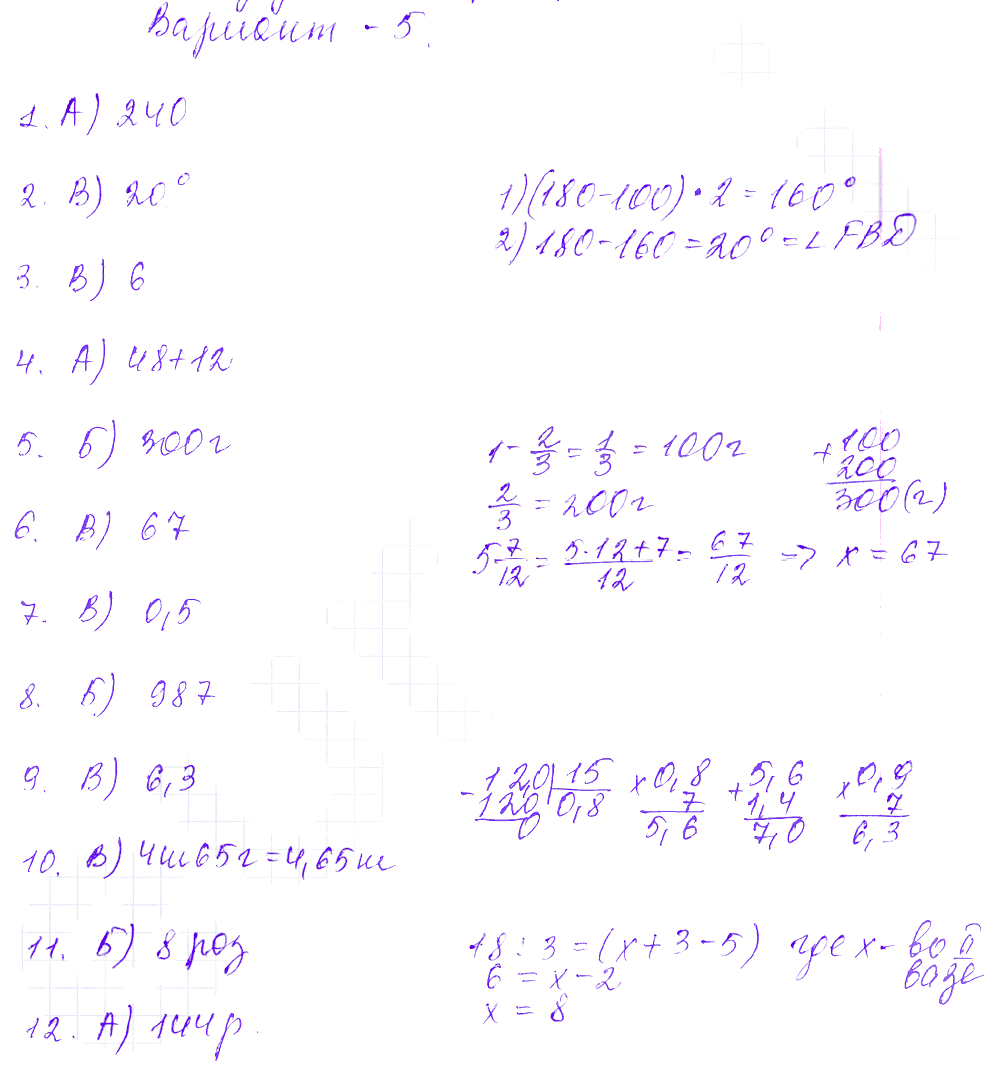 Вариант - 5.
1. А) 240
2. В) 20°
1) (180-100) · 2 = 160°
2) 180-160 = 20° = ∠ FBD
3. В) 6
4. А) 48+12
5. Б) 300г
1 - 2/3 = 1/3 = 100г
2/3 = 200г
+ 100
200
300(г)
6. В) 67
5 7/12 = 5·12+7/12 = 67/12 => x = 67
7. В) 0,5
8. Б) 987
9. В) 6,3
- 12,0 | 15
120 0,8
0
x 0,8
7
5,6
+ 5,6
1,4
7,0
x 0,9
7
6,3
10. В) 4ш65г = 4,65ш
11. Б) 8 роз
18 : 3 = (x + 3 - 5) где x - во II вазе
6 = x - 2
x = 8
12. А) 144р.